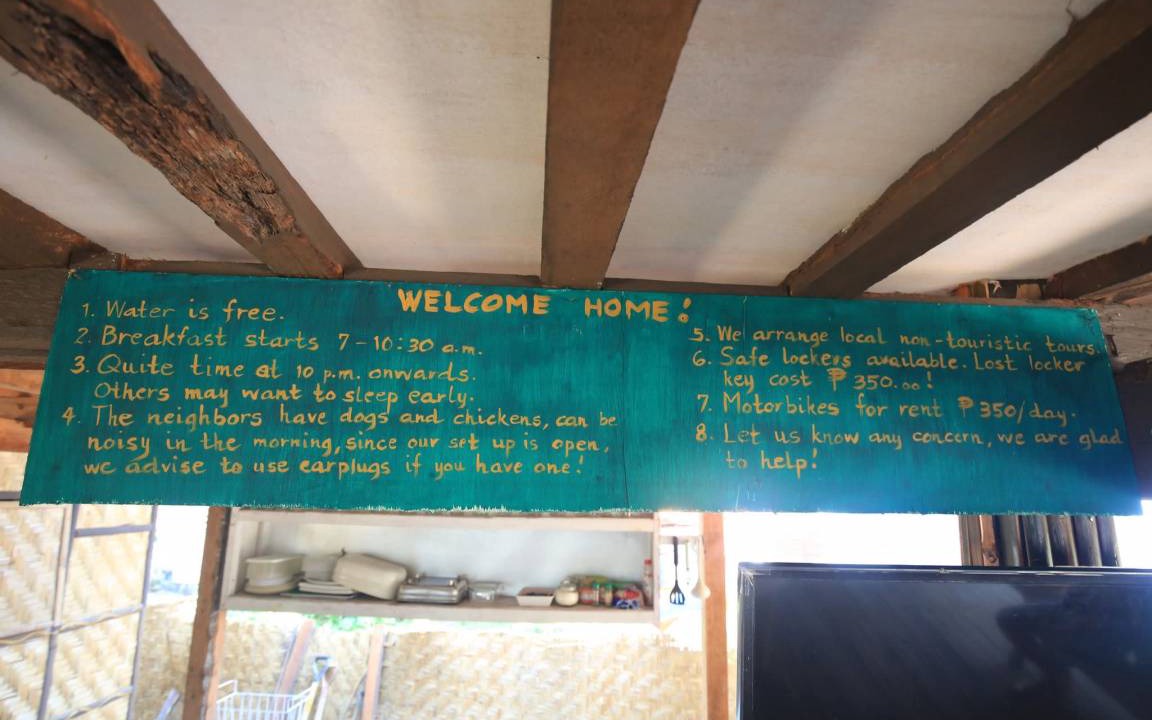 WELCOME HOME!
1. Water is free.
2. Breakfast starts 7-10:30 a.m.
3. Quite time at 10 p.m. onwards.
Others may want to sleep early.
4. The neighbors have dogs and chickens, can be
noisy in the morning, since our set up is open,
we advise to use earplugs if you have one!
5. We arrange local non-touristic tours.
6. Safe lockers available. Lost locker
key cost ₱350.00!
7. Motorbikes for rent ₱350/day.
8. Let us know any concern, we are glad
to help!